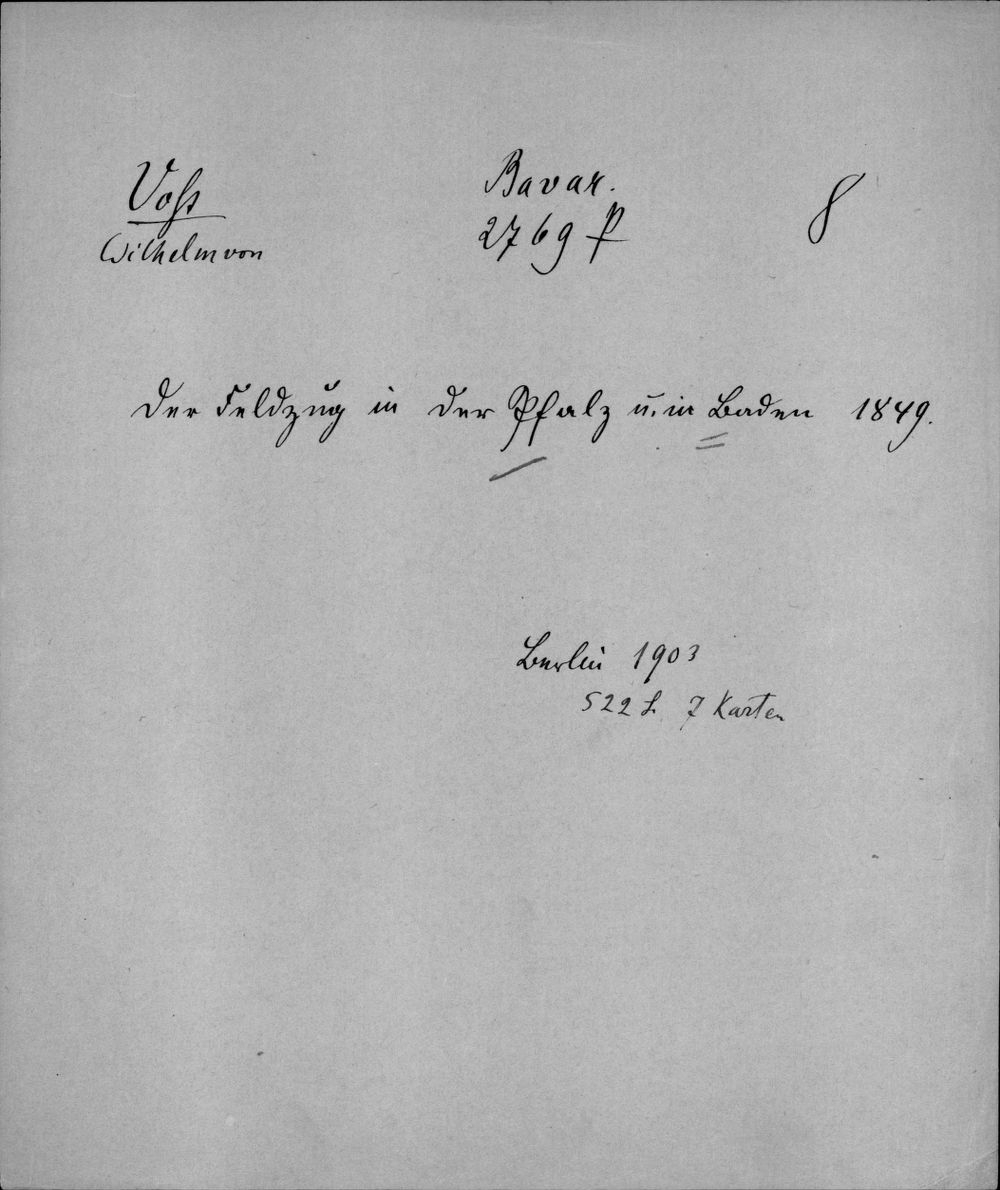 Voß
Wilhelm von
Bavar.
2769 P
8
Der Feldzug in der Pfalz u. in Baden 1849.
Berlin 1903
522 S. 7 Karten